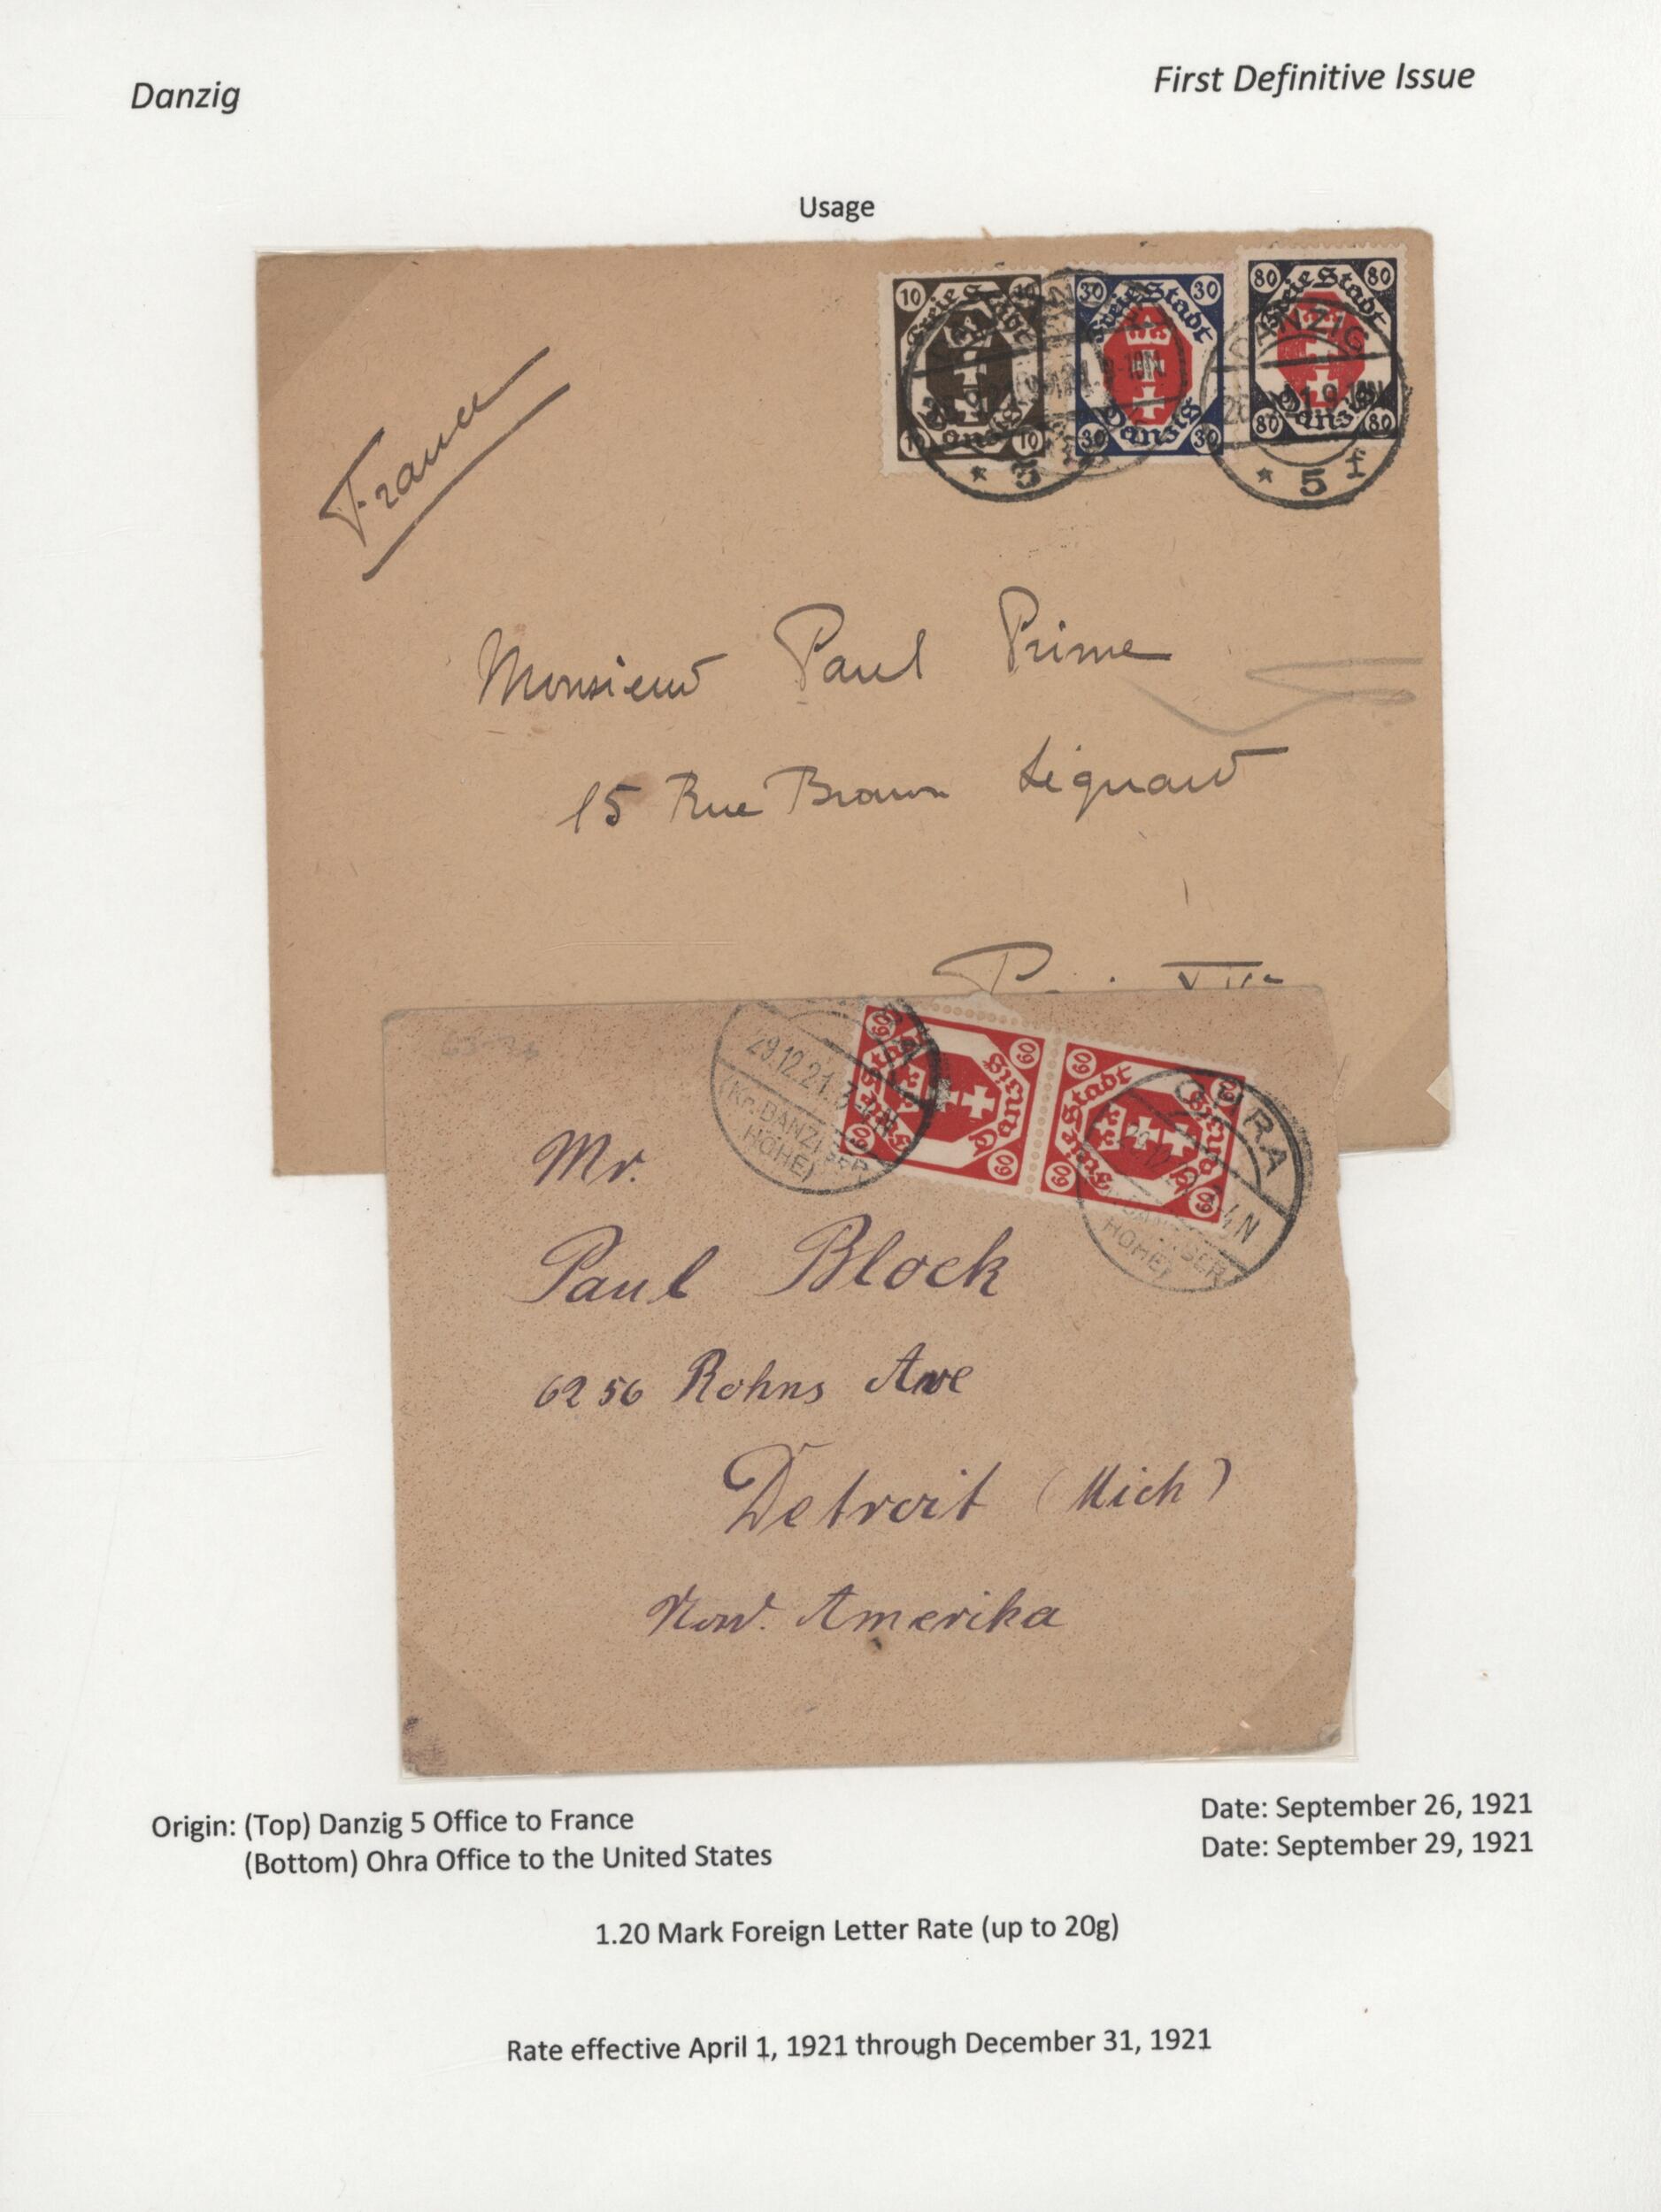 Danzig
First Definitive Issue
Usage
10 10
Freie Stadt
Danzig
10 10
30 30
Freie Stadt
Danzig
30 30
80 80
Freie Stadt
Danzig
80 80
* 5
DANZIG
* 5 f
France
Monsieur Paul Prime
15 Rue
60 60
Freie Stadt
Danzig
60 60
60 60
Freie Stadt
Danzig
60 60
29.12.21.3-4N
(Kr. DANZIGER
HÖHE)
OHRA
29.12.21.3-4N
DANZIGER
HÖHE)
Mr.
Paul Block
6256 Rohns Ave
Detroit (Mich)
Nord. Amerika
Origin: (Top) Danzig 5 Office to France
(Bottom) Ohra Office to the United States
Date: September 26, 1921
Date: September 29, 1921
1.20 Mark Foreign Letter Rate (up to 20g)
Rate effective April 1, 1921 through December 31, 1921